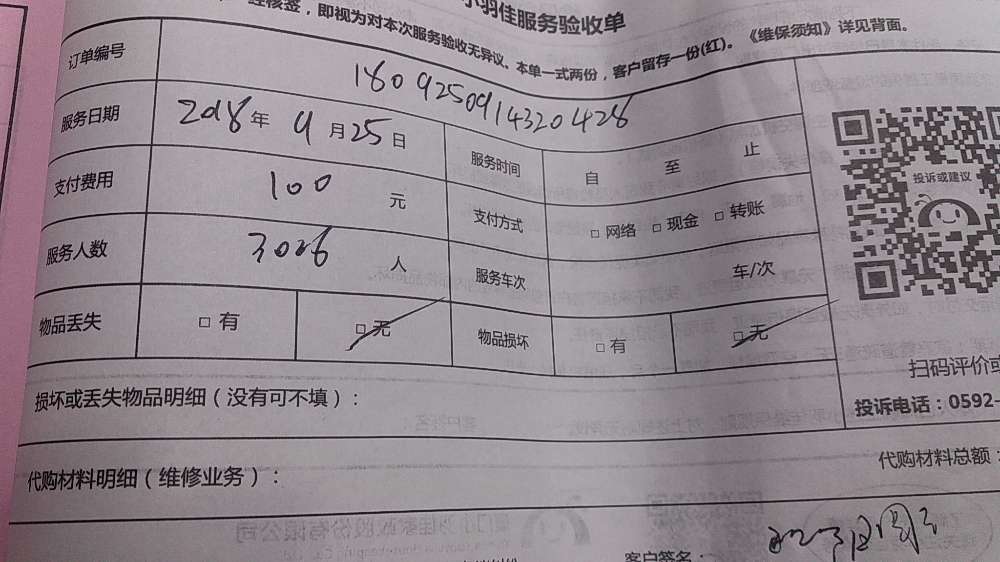 小羽佳服务验收单
经核签，即视为对本次服务验收无异议。本单一式两份，客户留存一份(红)。《维保须知》详见背面。
订单编号 180925091432０428
服务日期 2018年 9月25日 服务时间 自 至 止
支付费用 100 元 支付方式 □ 网络 □ 现金 □ 转账
服务人数 3026 人 服务车次 车/次
物品丢失 □ 有 □ 无 物品损坏 □ 有 □ 无
投诉或建议
扫码评价或
损坏或丢失物品明细（没有可不填）：
投诉电话：0592-
代购材料明细（维修业务）：
代购材料总额：
客户签名：